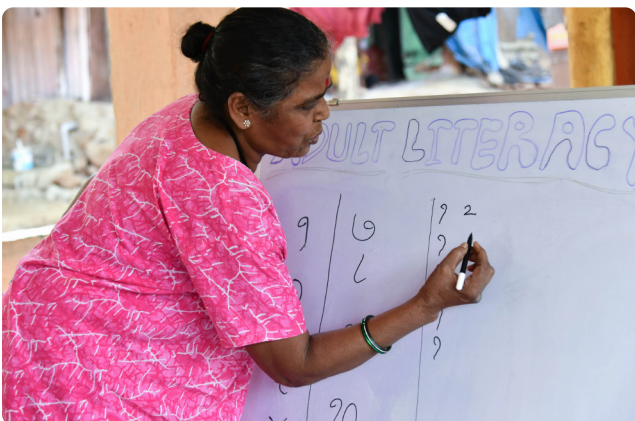 ADULT LITERACY
१ ७ १ २
८ १
१
१०